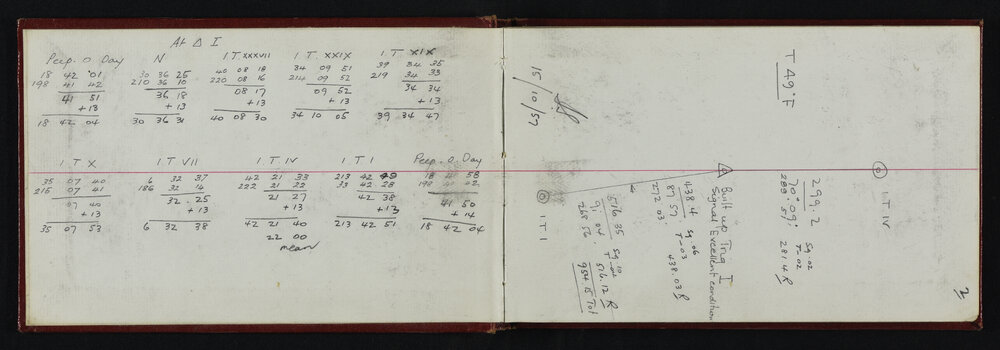 At △ I
Peep. O. Day N 1 T XXXVII 1 T XXIX 1 T XIX
18 42 01 30 36 25 40 08 18 34 09 51 39 34 35
198 41 42 210 36 10 220 08 16 214 09 52 219 34 33
41 51 36 18 08 17 09 52 34 34
+13 +13 +13 +13 +13
18 42 04 30 36 31 40 08 30 34 10 05 39 34 47
1 T X 1 T VII 1 T IV 1 T I Peep. O. Day
35 07 40 6 32 37 42 21 33 213 42 49 18 41 58
215 07 41 186 32 14 222 21 22 33 42 28 198 42
07 40 32 25 21 27 42 38 41 50
+13 +13 +13 +13 +14
35 07 53 6 32 38 42 21 40 213 42 51 18 42 04
22 00
mean
2
T 49°F
15/10/57
1 T IV
299.2 Sg .02
70° 09' T -.02
289 51 281.4 R
I
Built up Trig
Signal Excellent condition
438.4 Sg .06
87 57 T -.03
272 03 438.03 R
576.35 Sg .10
91 04 T -.02
268 56 576.12 R
954.15 Tot
1 T I